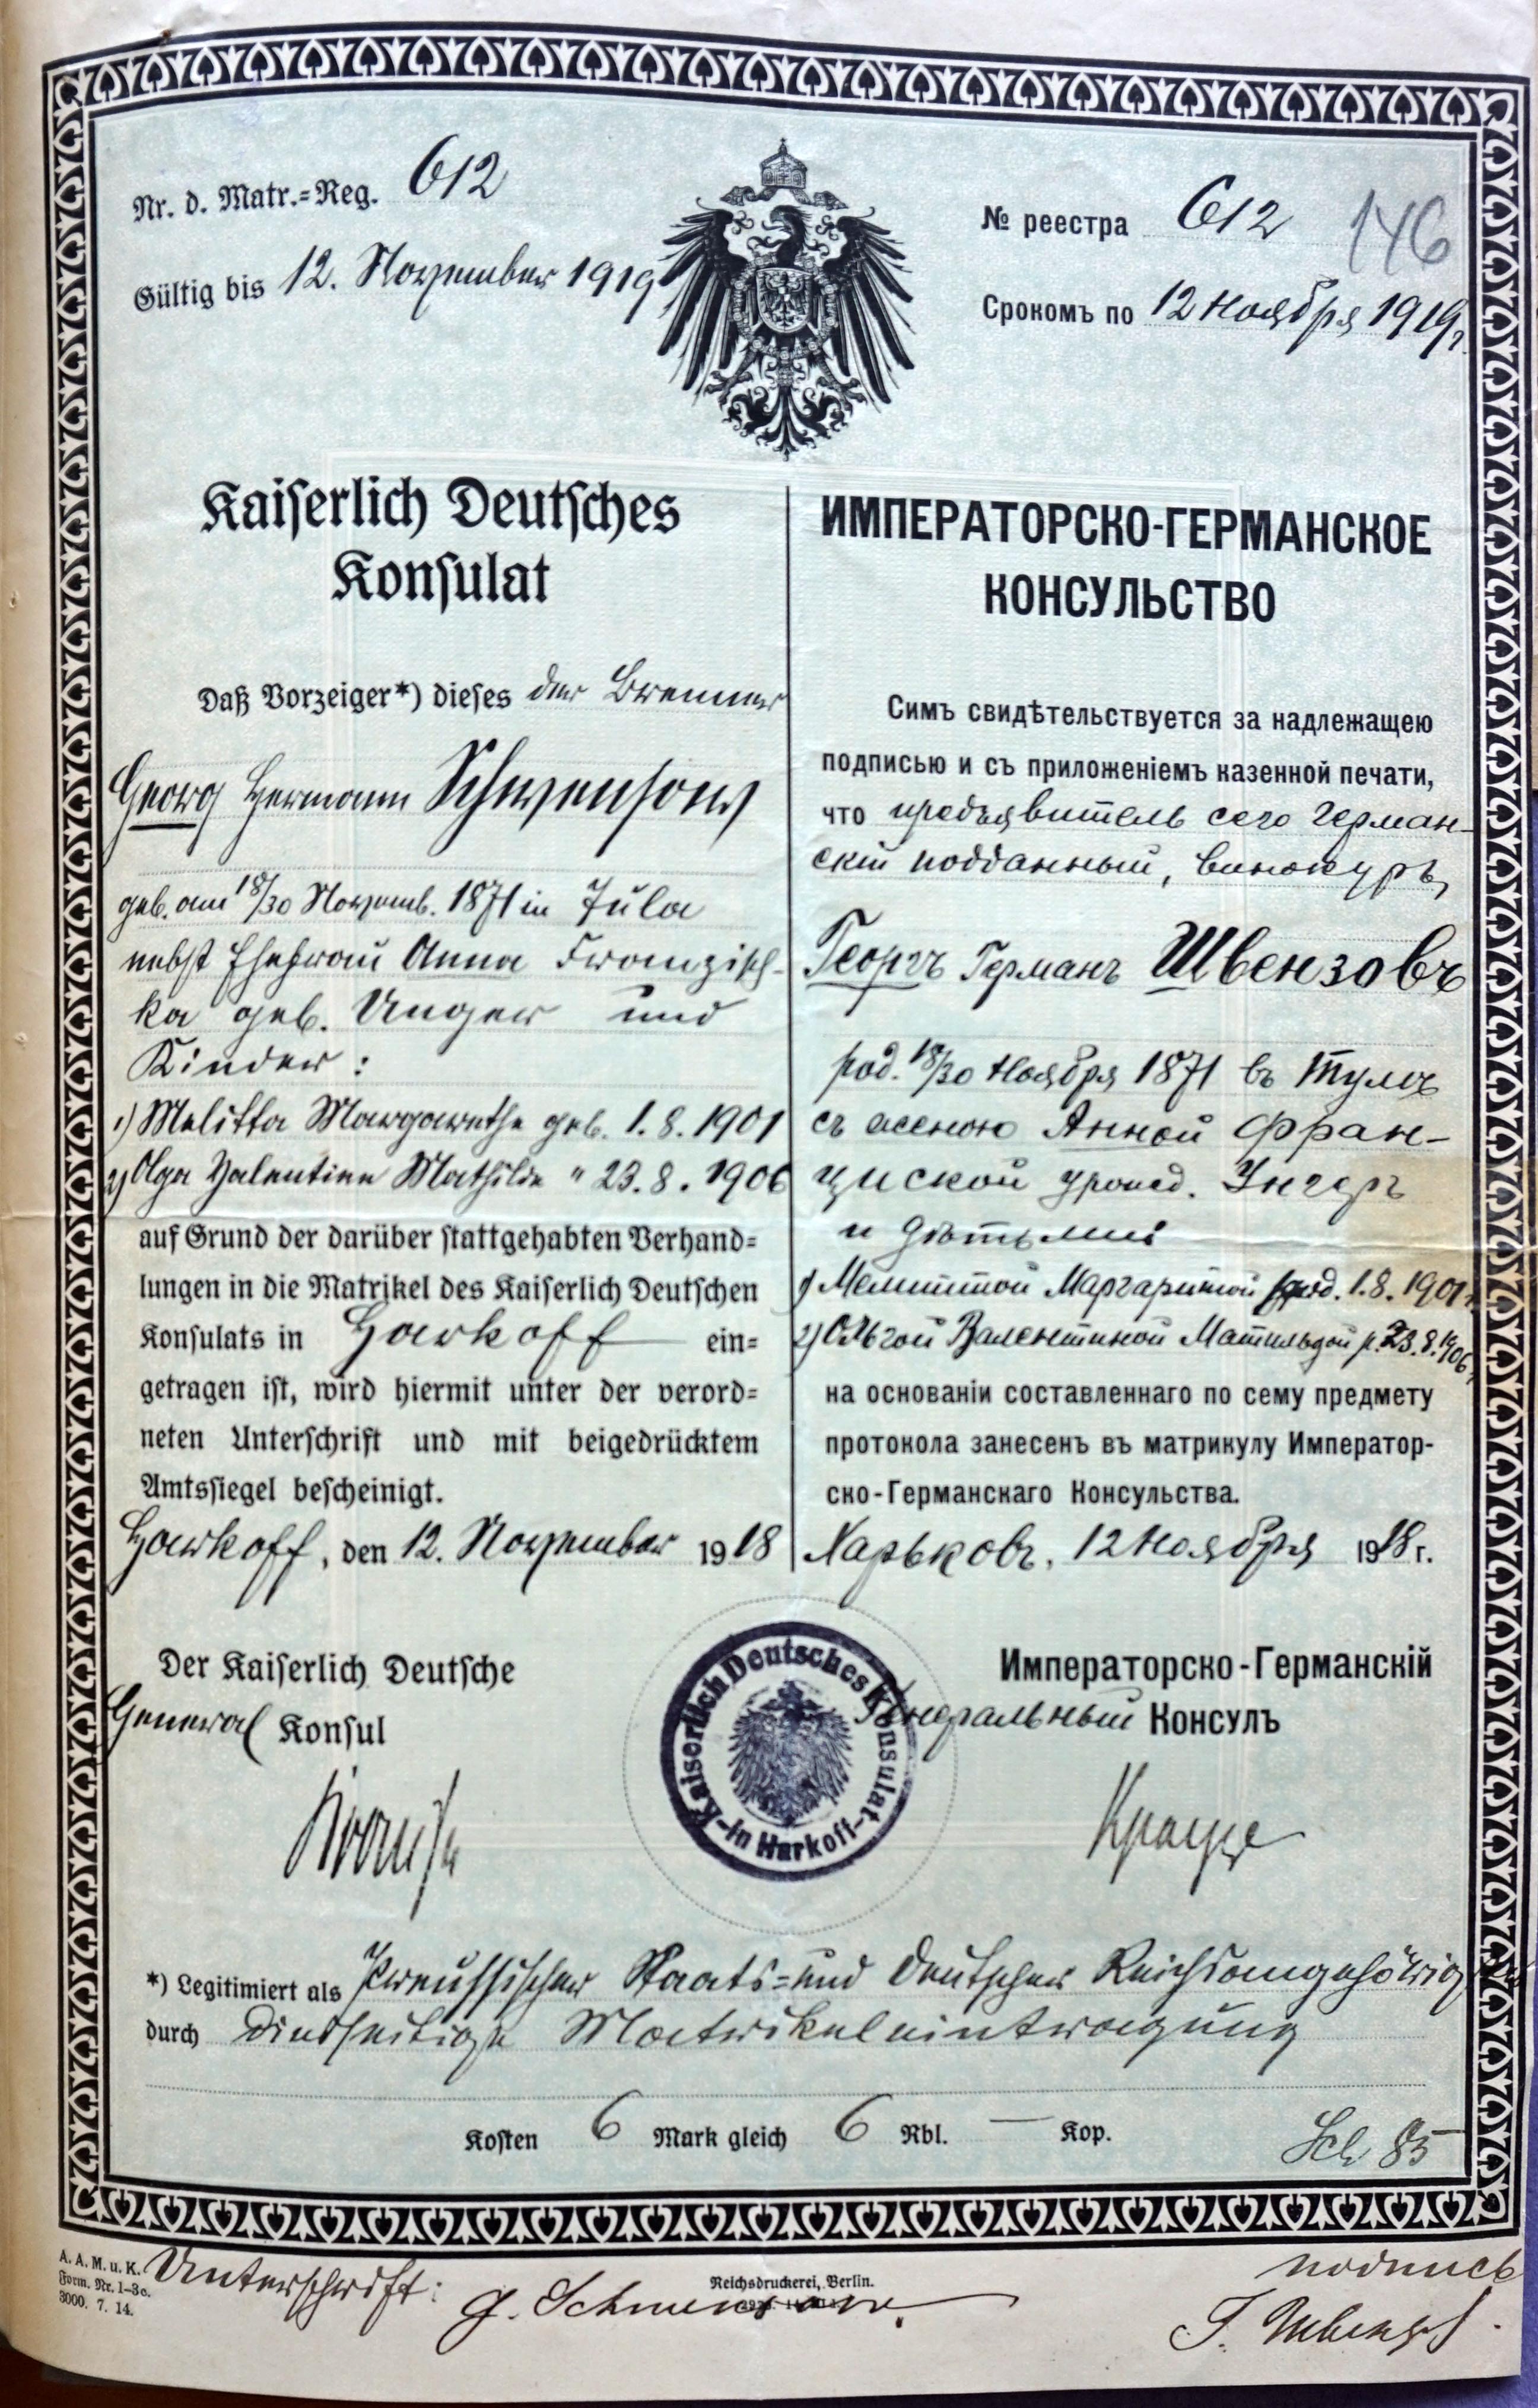 Nr. d. Matr.=Reg. 612
Gültig bis 12. November 1919
№ реестра 612 146
Срокомъ по 12 Ноября 1919 г.
Kaiserlich Deutsches
Konsulat
Daß Vorzeiger*) dieses der Brenner
Georg Hermann Schwensow
geb. am 18/30 Novemb. 1871 in Tula
nebst Ehefrau Anna Franzisk-
ka geb. Unger und
Kinder:
1) Melitta Margarethe geb. 1.8.1901
2) Olga Valentine Mathilde " 23.8.1906
auf Grund der darüber stattgehabten Verhand=
lungen in die Matrikel des Kaiserlich Deutschen
Konsulats in Harkoff ein=
getragen ist, wird hiermit unter der verord=
neten Unterschrift und mit beigedrücktem
Amtssiegel bescheinigt.
Harkoff, den 12. November 1918
Der Kaiserlich Deutsche
General Konsul
Krause
ИМПЕРАТОРСКО-ГЕРМАНСКОЕ
КОНСУЛЬСТВО
Симъ свидѣтельствуется за надлежащею
подписью и съ приложеніемъ казенной печати,
что предъявитель сего герман-
скій подданный, винокуръ,
Георгъ Германъ Швензовъ
род. 18/30 Ноября 1871 въ Тулѣ
съ женою Анной Фран-
циской урожд. Унгеръ
и дѣтьми:
1) Мелиттой Маргаритой рожд. 1.8.1901 г.
2) Ольгой Валентиной Матильдой р. 23.8.1906 г.
на основаніи составленнаго по сему предмету
протокола занесенъ въ матрикулу Император-
ско-Германскаго Консульства.
Харьковъ, 12 Ноября 1918 г.
Императорско-Германскій
Генеральный Консулъ
Краузе
Kaiserlich Deutsches Konsulat
-in Harkoff-
*) Legitimiert als Preussischer Staats- und Deutscher Reichsangehöriger
durch diesseitige Matrikeleintragung
Kosten 6 Mark gleich 6 Rbl. — Kop.
Sch 85
A. A. M. u. K.
Form. Nr. 1-3c.
3000. 7. 14.
Unterschrift: G. Schwensow.
Reichsdruckerei, Berlin.
подпись
Г. Швензовъ